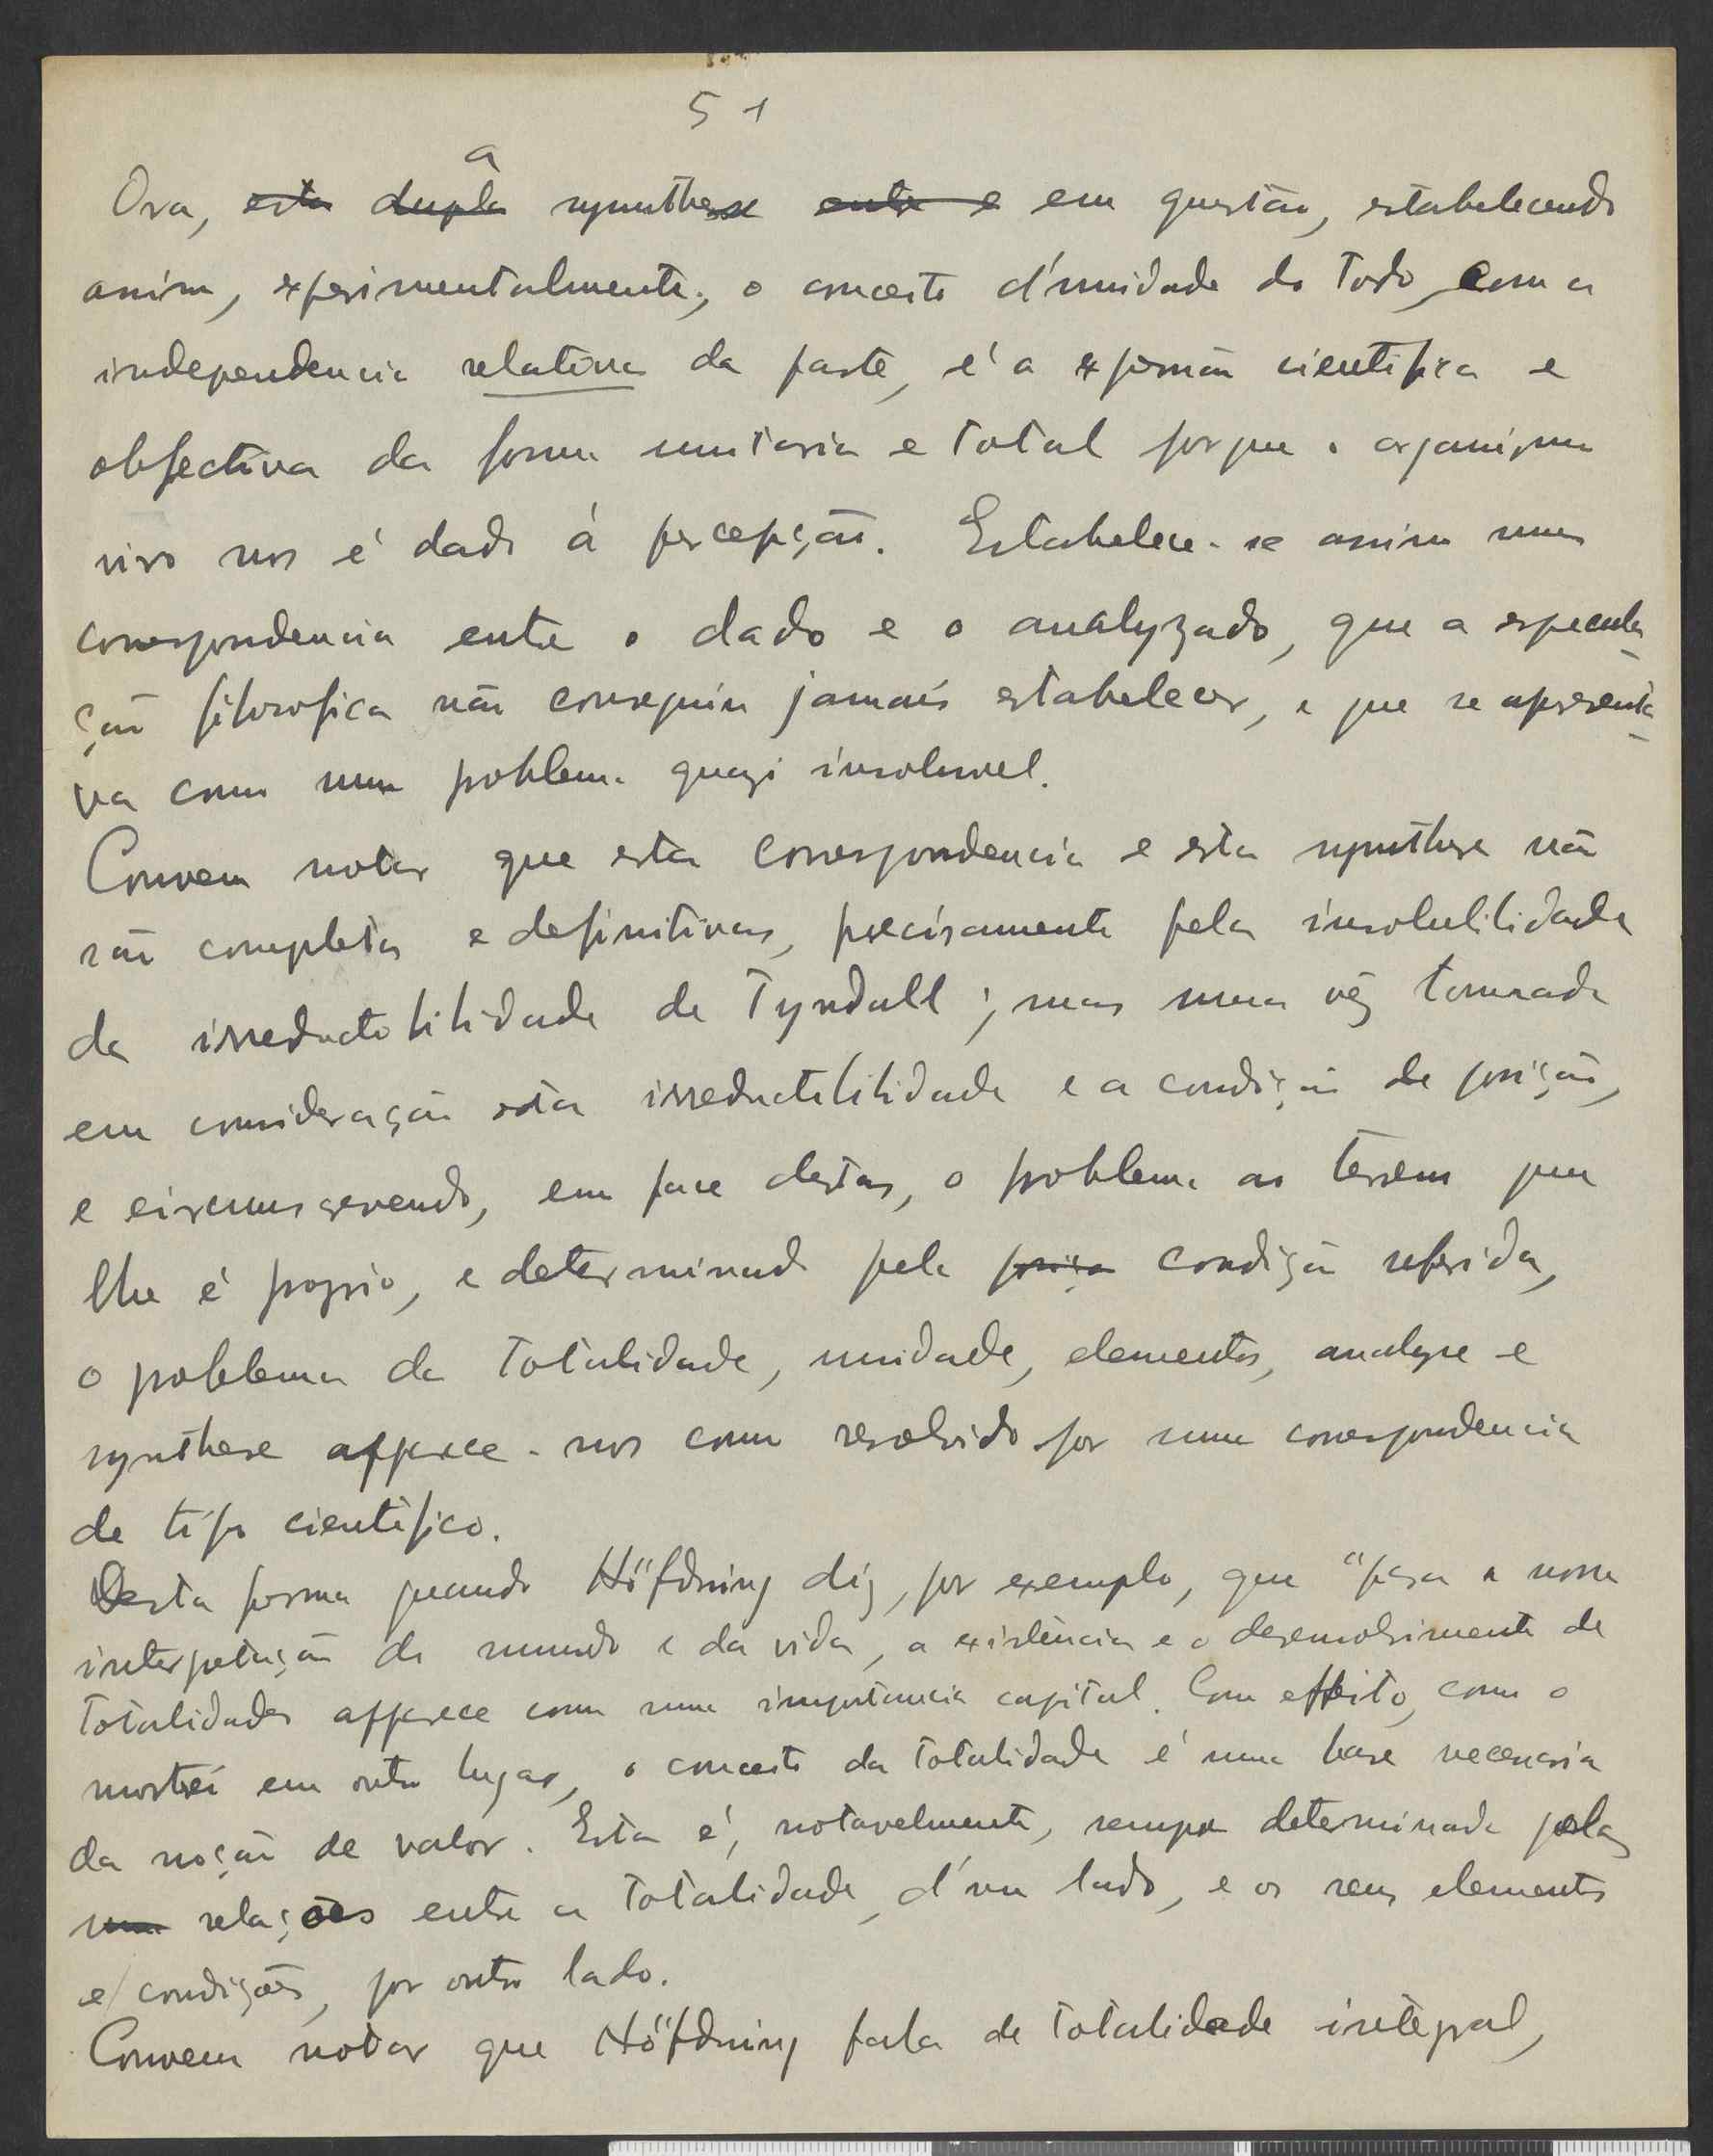 51
a
Ora, esta dupla synthese entre e em questão, estabelecendo
assim, experimentalmente, o conceito d'unidade do todo, com a
independencia relativa da parte, é a expressão cientifica e
objectiva da forma unitaria e total porque o organismo
vivo nos é dado á percepção. Estabelece-se assim uma
correspondencia entre o dado e o analyzado, que a especula-
ção filosofica não conseguiu jamais estabelecer, e que se apresenta-
va como um problema quazi insoluvel.
Convem notar que esta correspondencia e esta synthese não
são completas e definitivas, precisamente pela insolubilidade
da irreductibilidade de Tyndall; mas uma vêz tomada
em consideração esta irreductibilidade e a condição de posição,
e circumscrevendo, em face destas, o problema ao terreno que
lhe é proprio, e determinado pela posiçã condição referida,
o problema da totalidade, unidade, elementos, analyse e
synthese apparece-nos como resolvido por uma correspondencia
de tipo cientifico.
Desta forma quando Höffdning diz, por exemplo, que "para a nossa
interpretação do mundo e da vida, a existência e o desenvolvimento de
totalidades apparece como uma importancia capital. Com effeito, como o
mostrei em outro lugar, o conceito da totalidade é uma base necessaria
da noção de valor. Esta é, notavelmente, sempre determinada pelas
uma relações entre a totalidade, d'um lado, e os seus elementos
e condições, por outro lado.
Convem notar que Höffdning fala de totalidade integral,